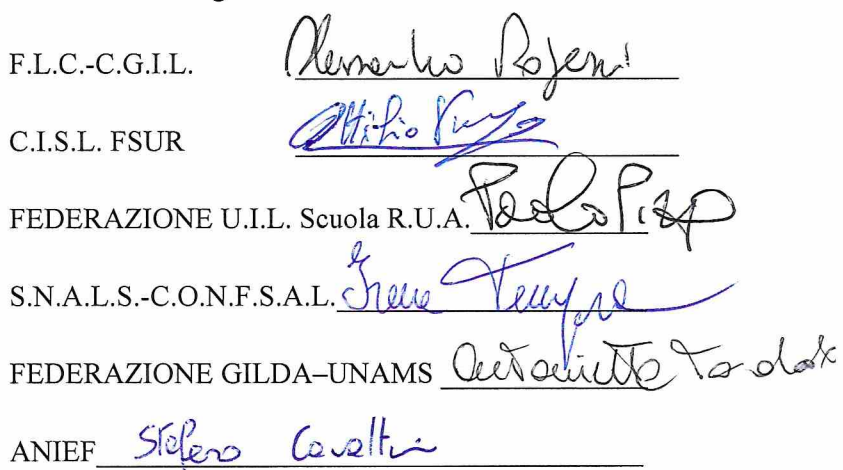 F.L.C.-C.G.I.L. Alessandro Rapezzi
C.I.S.L. FSUR Attilio Varengo
FEDERAZIONE U.I.L. Scuola R.U.A. Paolo Pizzo
S.N.A.L.S.-C.O.N.F.S.A.L. Irene Tempera
FEDERAZIONE GILDA–UNAMS Antonietta Toraldo
ANIEF Stefano Cavallini